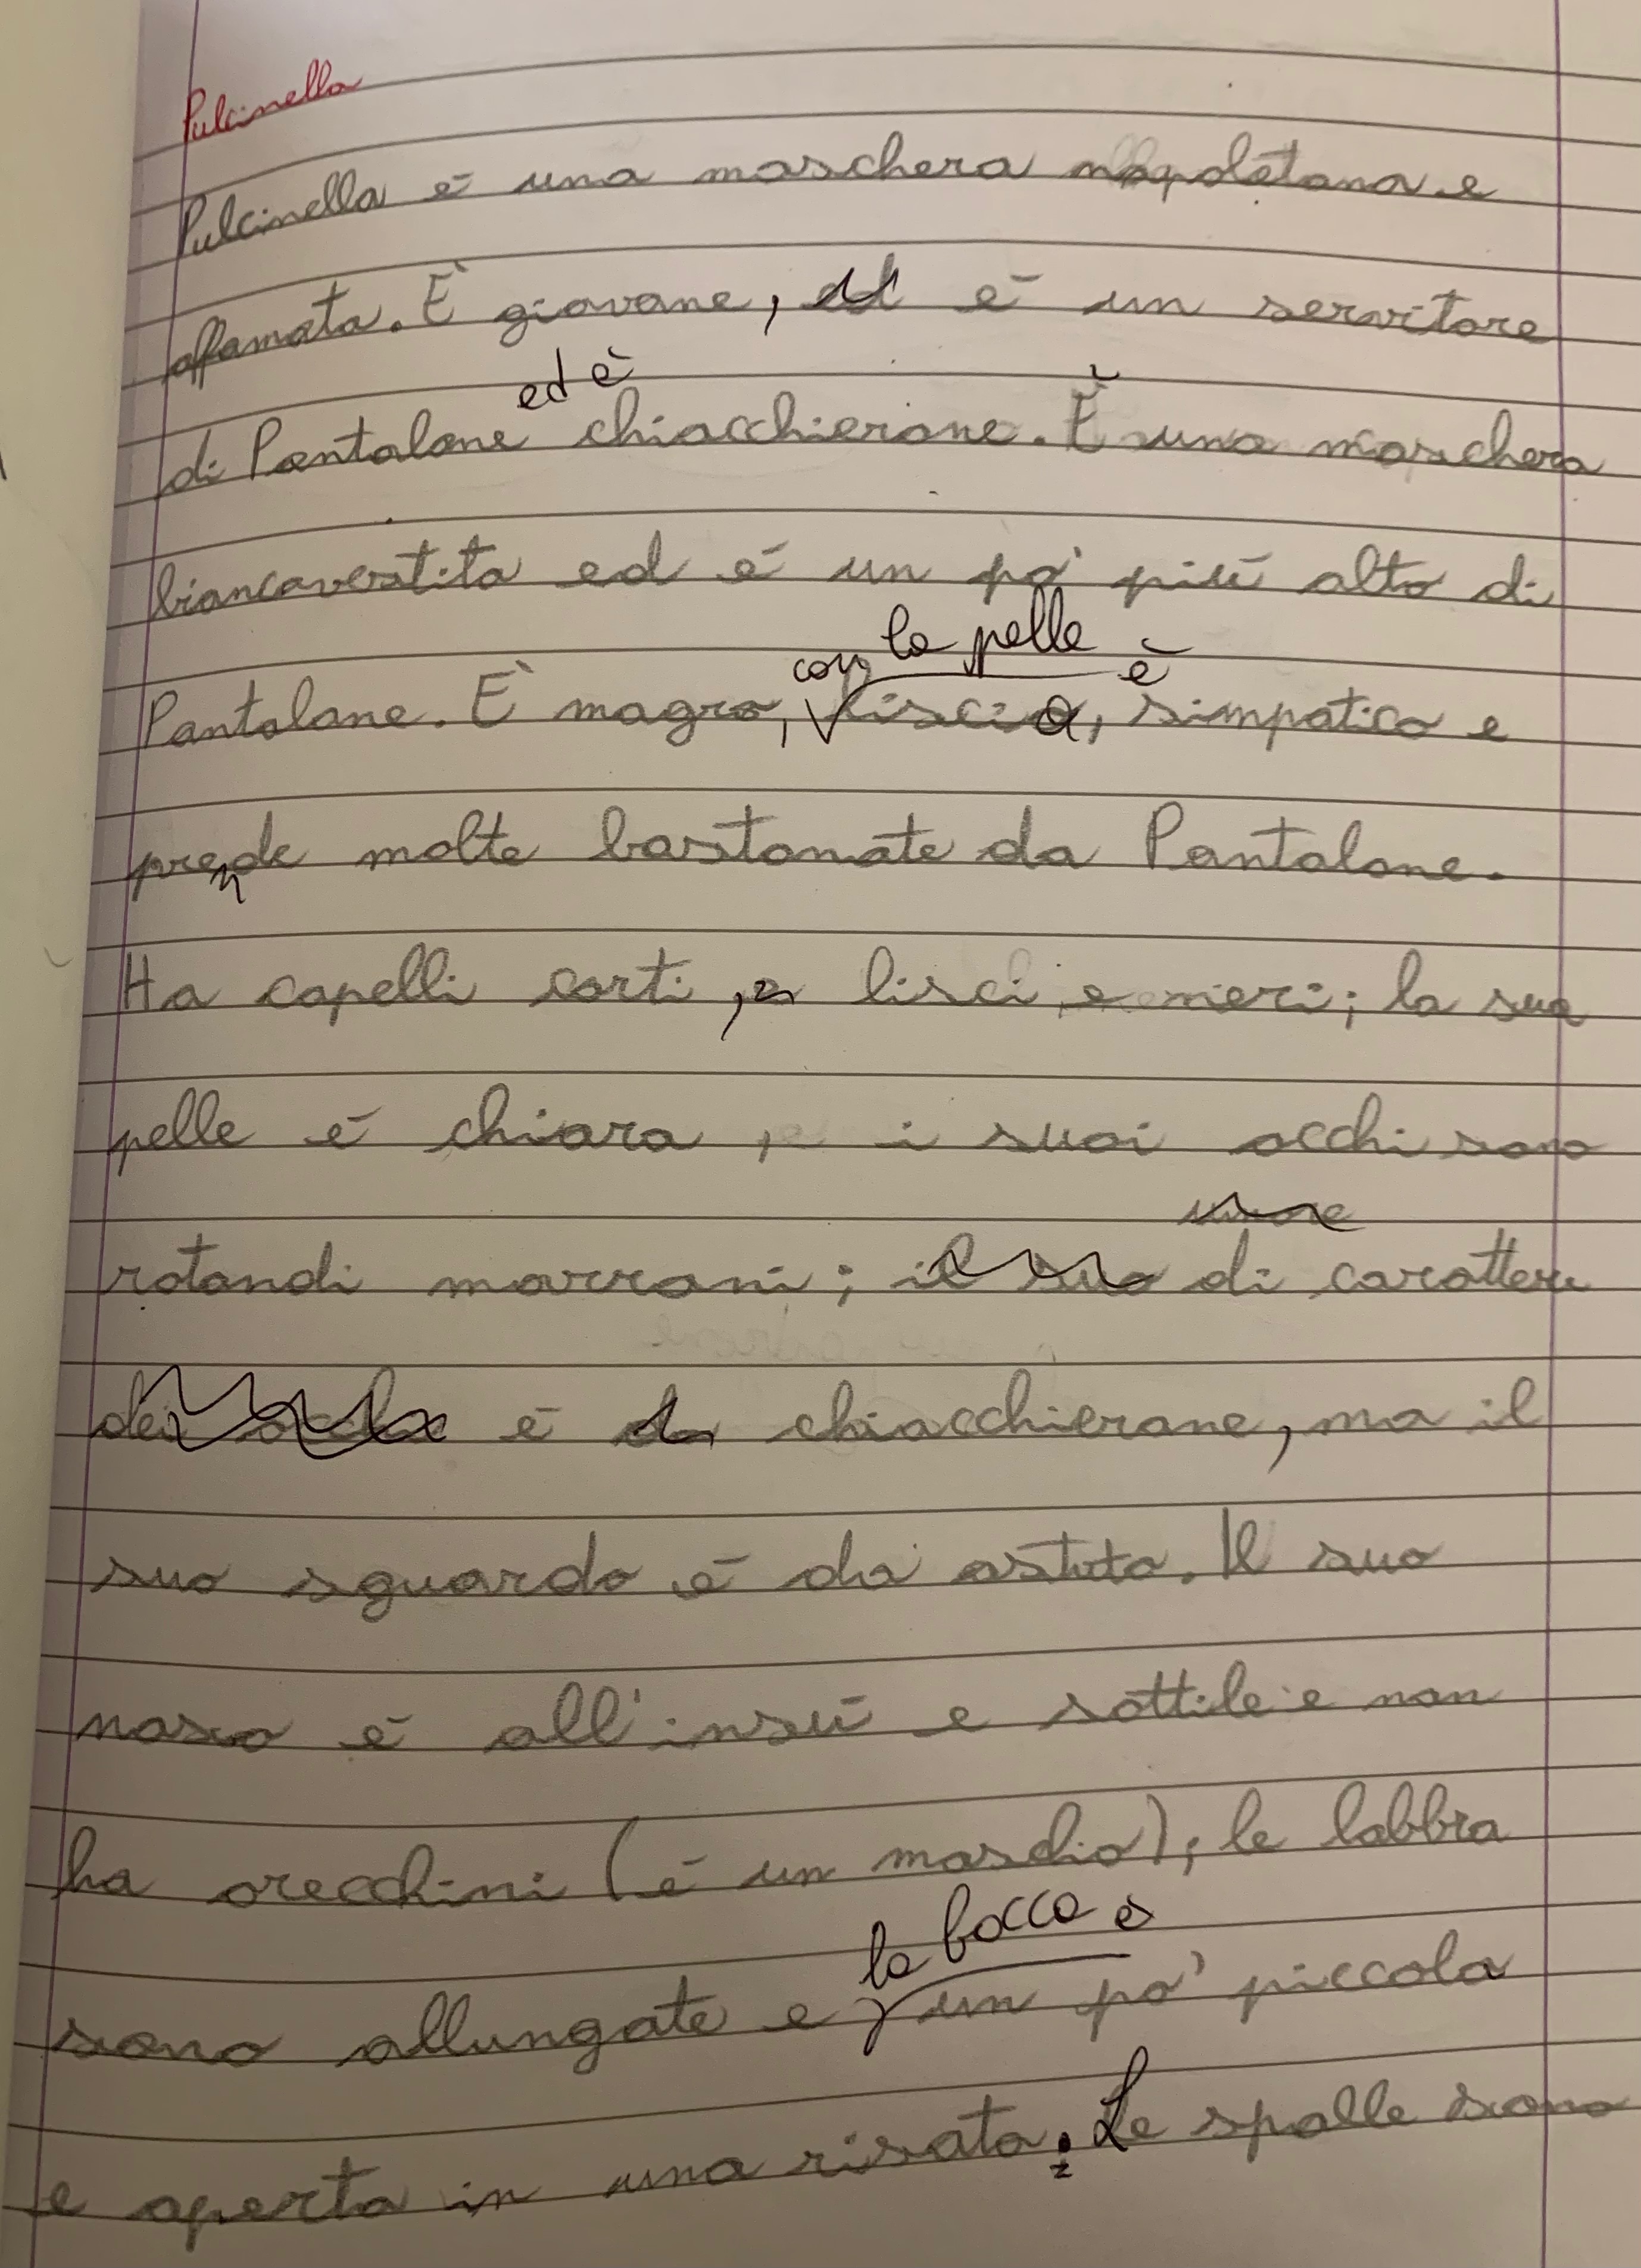 Pulcinella
Pulcinella è una maschera napoletana e
affamata. È giovane, è un servitore
ed è
di Pantalone chiacchierone. È una maschera
biancavestita ed è un po' più alto di
con la pelle è
Pantalone. È magro, liscia, simpatico e
prende molte bastonate da Pantalone.
Ha capelli corti, lisci e neri; la sua
pelle è chiara, i suoi occhi sono
rotondi marroni; il suo di carattere
è chiacchierone, ma il
suo sguardo è da astuto. Il suo
naso è all'insù e sottile e non
ha orecchini (è un maschio); le labbra
la bocca è
sono allungate e un po' piccola
e aperta in una risata. Le spalle sono